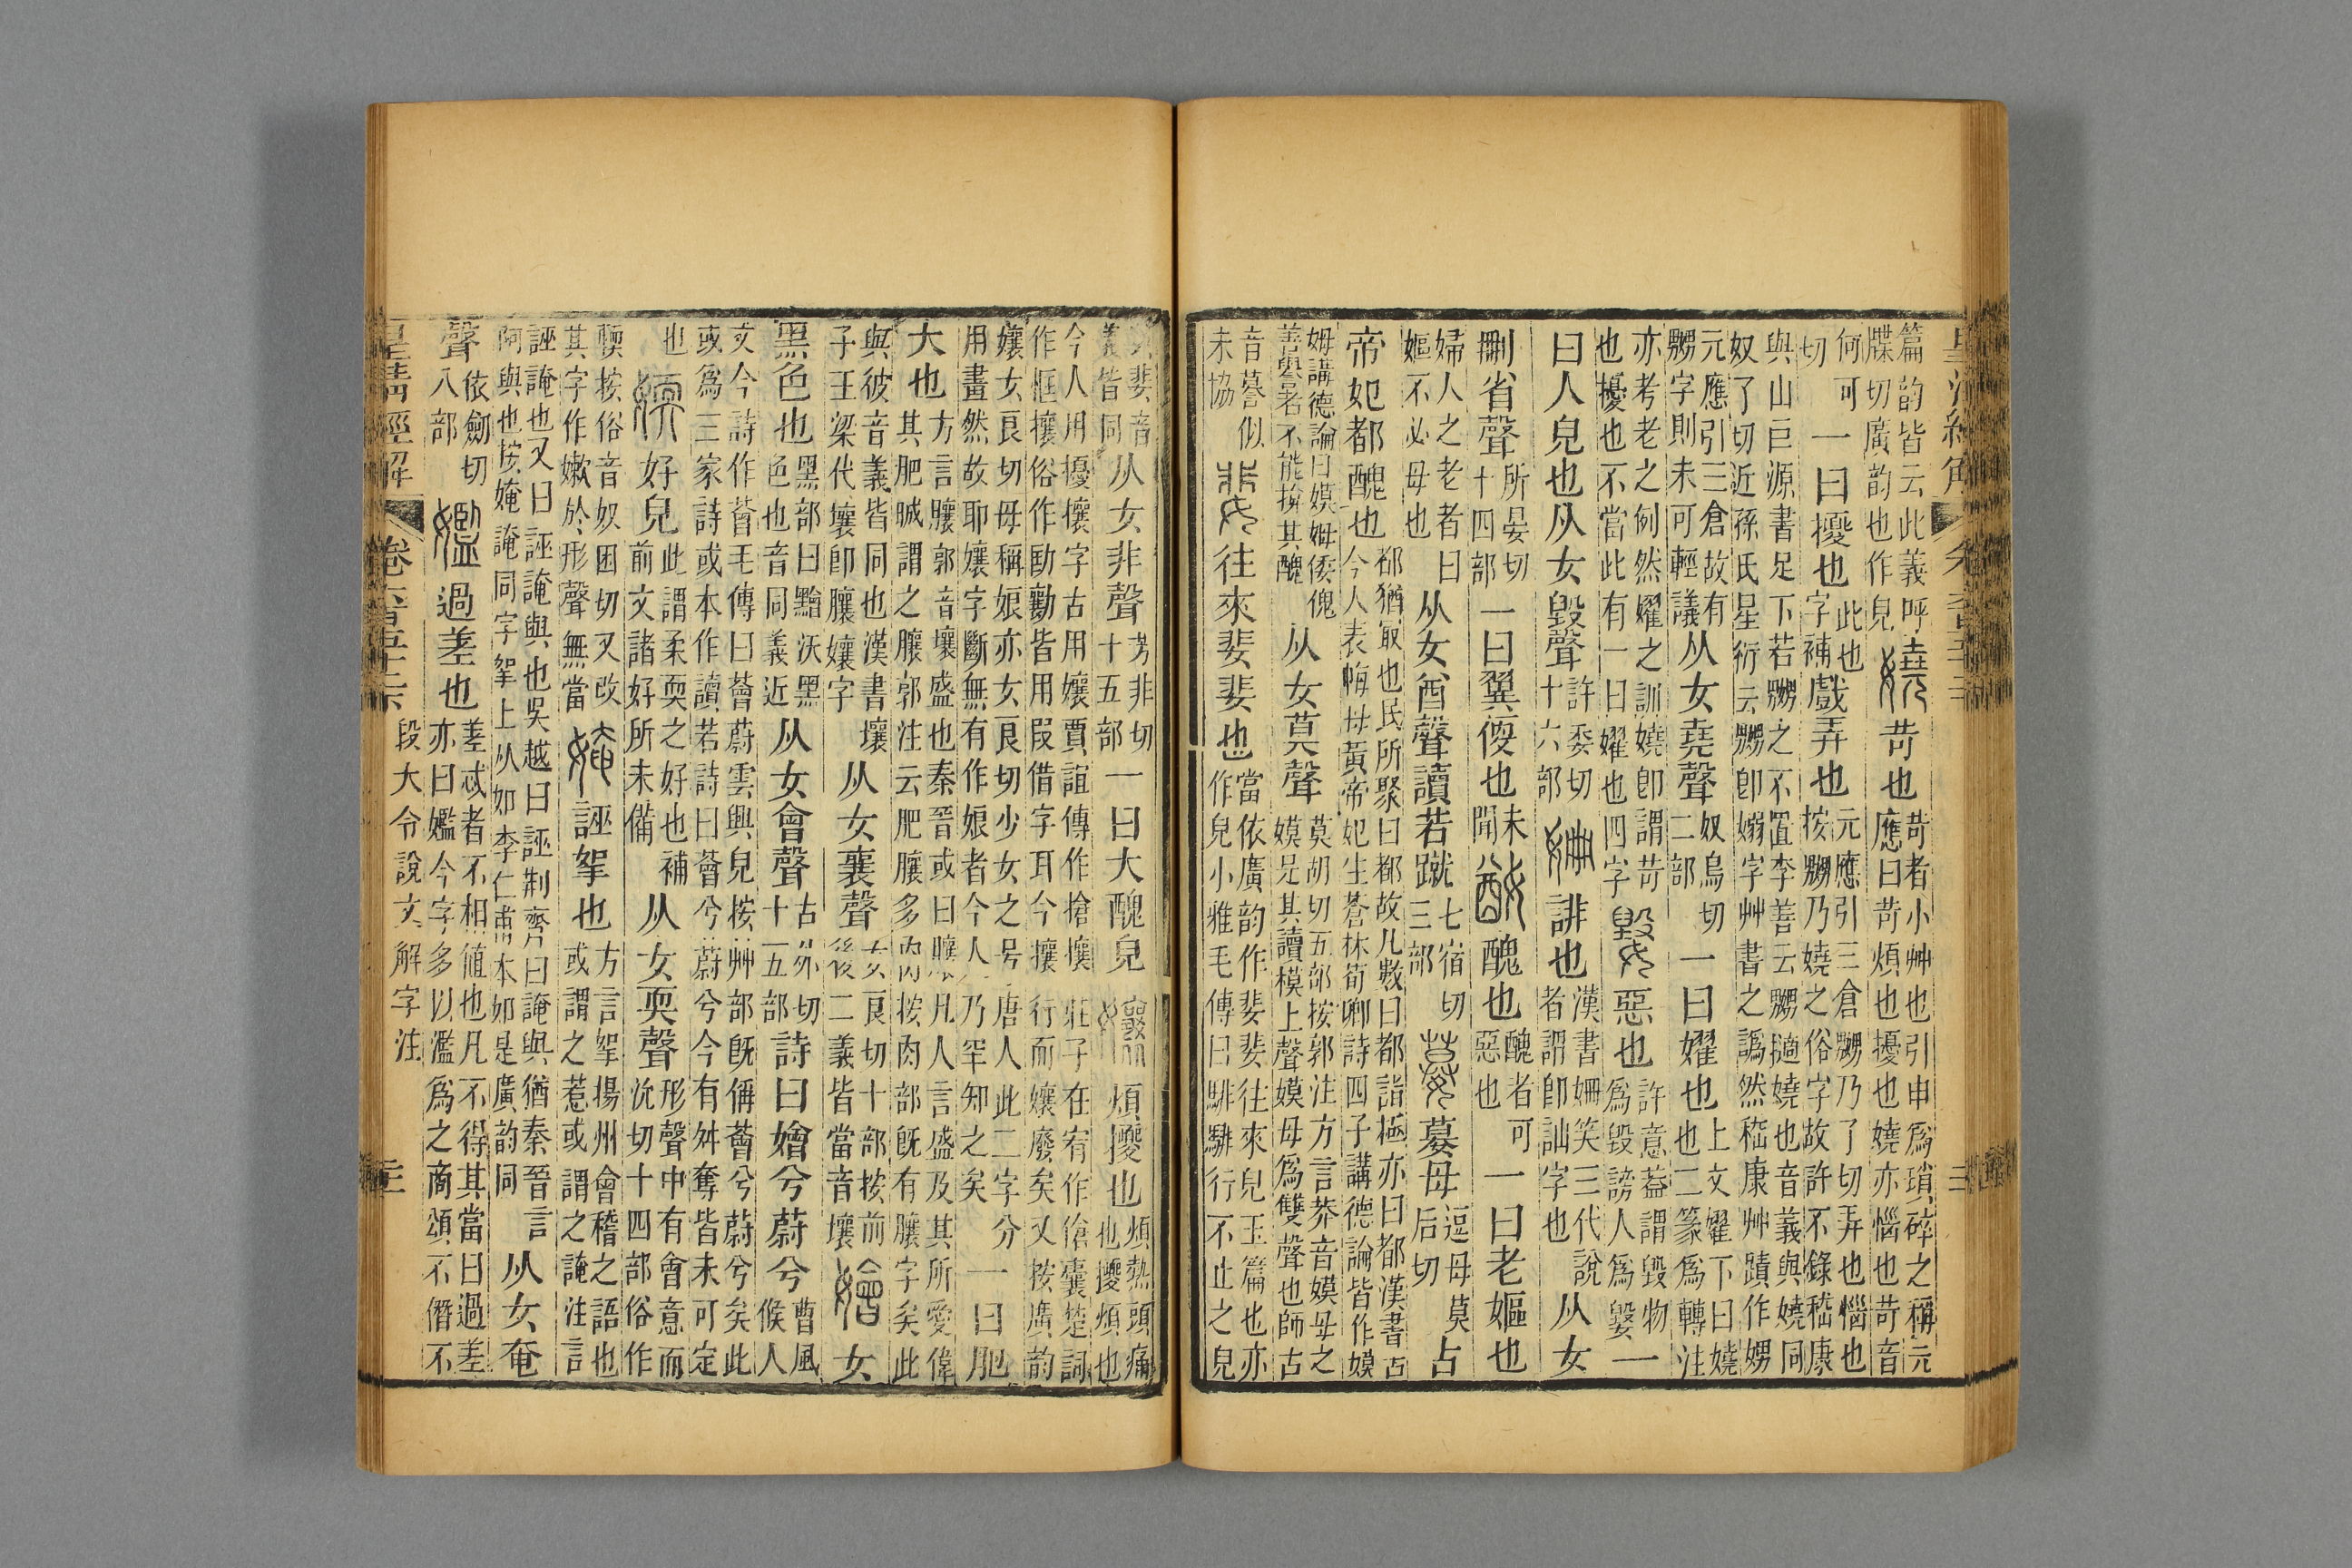 篇韵皆云此義呼
牒切廣韵也作皃
嬈苛也
苛者小艸也引申爲瑣碎之稱元
應曰苛煩也擾也嬈亦惱也苛音
何可
切
一曰擾也
此也
字補
戲弄也
元應引三倉嬲乃了切弄也惱也
按嬲乃嬈之俗字故許不錄嵇康
與山巨源書足下若嬲之不置李善云嬲擿嬈也音義與嬈同
奴了切近孫氏星衍云嬲卽嫋字艸書之譌然嵇康艸蹟作娚
元應引三倉故有
嬲字則未可輕議
从女堯聲
奴鳥切
二部
一曰嬥也
上文嬥下曰嬈
也二篆爲轉注
亦考老之例然嬥之訓嬈卽謂苛
也擾也不當此有一曰嬥也四字
嬰惡也
許意蓋謂毀物
爲毀謗人爲嬰
一
曰人皃也从女毀聲
許委切
十六部
姍誹也
漢書姍笑三代說
者謂卽訕字也
从女
刪省聲
所晏切
十四部
一曰翼便也
未
聞
醜也
醜者可
惡也
一曰老嫗也
婦人之老者曰
嫗不必母也
从女酋聲讀若蹴
七宿切
三部
嫫母
逗母莫
后切
古
帝妃都醜也
都猶冣也民所聚曰都故凡數曰都詣極亦曰都漢書古
今人表𢘃母黃帝妃生蒼林荀卿詩四子講德論皆作嫫
姆講德論曰嫫姆倭傀
善譽者不能揜其醜
从女莫聲
莫胡切五部按郭注方言莽音嫫母之
嫫是其讀模上聲嫫母爲雙聲也師古
音謩似
未協
婓往來婓婓也
當依廣韵作婓婓往來皃玉篇也亦
作皃小雅毛傳曰騑騑行不止之皃
婓音
義皆同
从女非聲
芳非切
十五部
一曰大醜皃
孃煩㹛也
煩熱頭痛
也㹛煩也
今人用擾攘字古用孃賈誼傳作搶攘莊子在宥作傖囊楚詞
作恇攘俗作劻勷皆用叚借字耳今攘行而孃廢矣又按廣韵
孃女良切母稱娘亦女良切少女之号唐人此二字分
用畫然故耶孃字斷無有作娘者今人乃罕知之矣
一曰肥
大也
方言䑋郭音壤盛也秦晉或曰䑋凡人言盛及其所愛偉
其肥晠謂之䑋郭注云肥䑋多肉按肉部旣有䑋字矣此
與彼音義皆同也漢書壤
子王梁代壤卽䑋孃字
从女襄聲
女良切十部按前
後二義皆當音壤
嬒女
黑色也
黑部曰黵沃黑
色也音同義近
从女會聲
古外切
十五部
詩曰嬒兮蔚兮
曹風
候人
文今詩作薈毛傳曰薈蔚雲興皃按艸部旣偁薈兮蔚兮矣此
或爲三家詩或本作讀若詩曰薈兮蔚兮今有舛奪皆未可定
也
媆好皃
此謂柔耎之好也補
前文諸好所未備
从女耎聲
形聲中有會意而
沇切十四部俗作
㜛按俗音奴困切又改
其字作嫰於形聲無當
㛪誣挐也
方言挐揚州會稽之語也
或謂之惹或謂之䛳注言
誣䛳也又曰誣䛳與也吳越曰誣荆齊曰䛳與猶秦晉言
阿與也按㛪䛳同字挐上从如李仁甫本如是廣韵同
从女奄
聲
依劒切
八部
㜮過差也
差忒者不相値也凡不得其當曰過差
亦曰㜮今字多以濫爲之商頌不僭不
皇淸經解
卷六百五十二下
段大令說文解字注